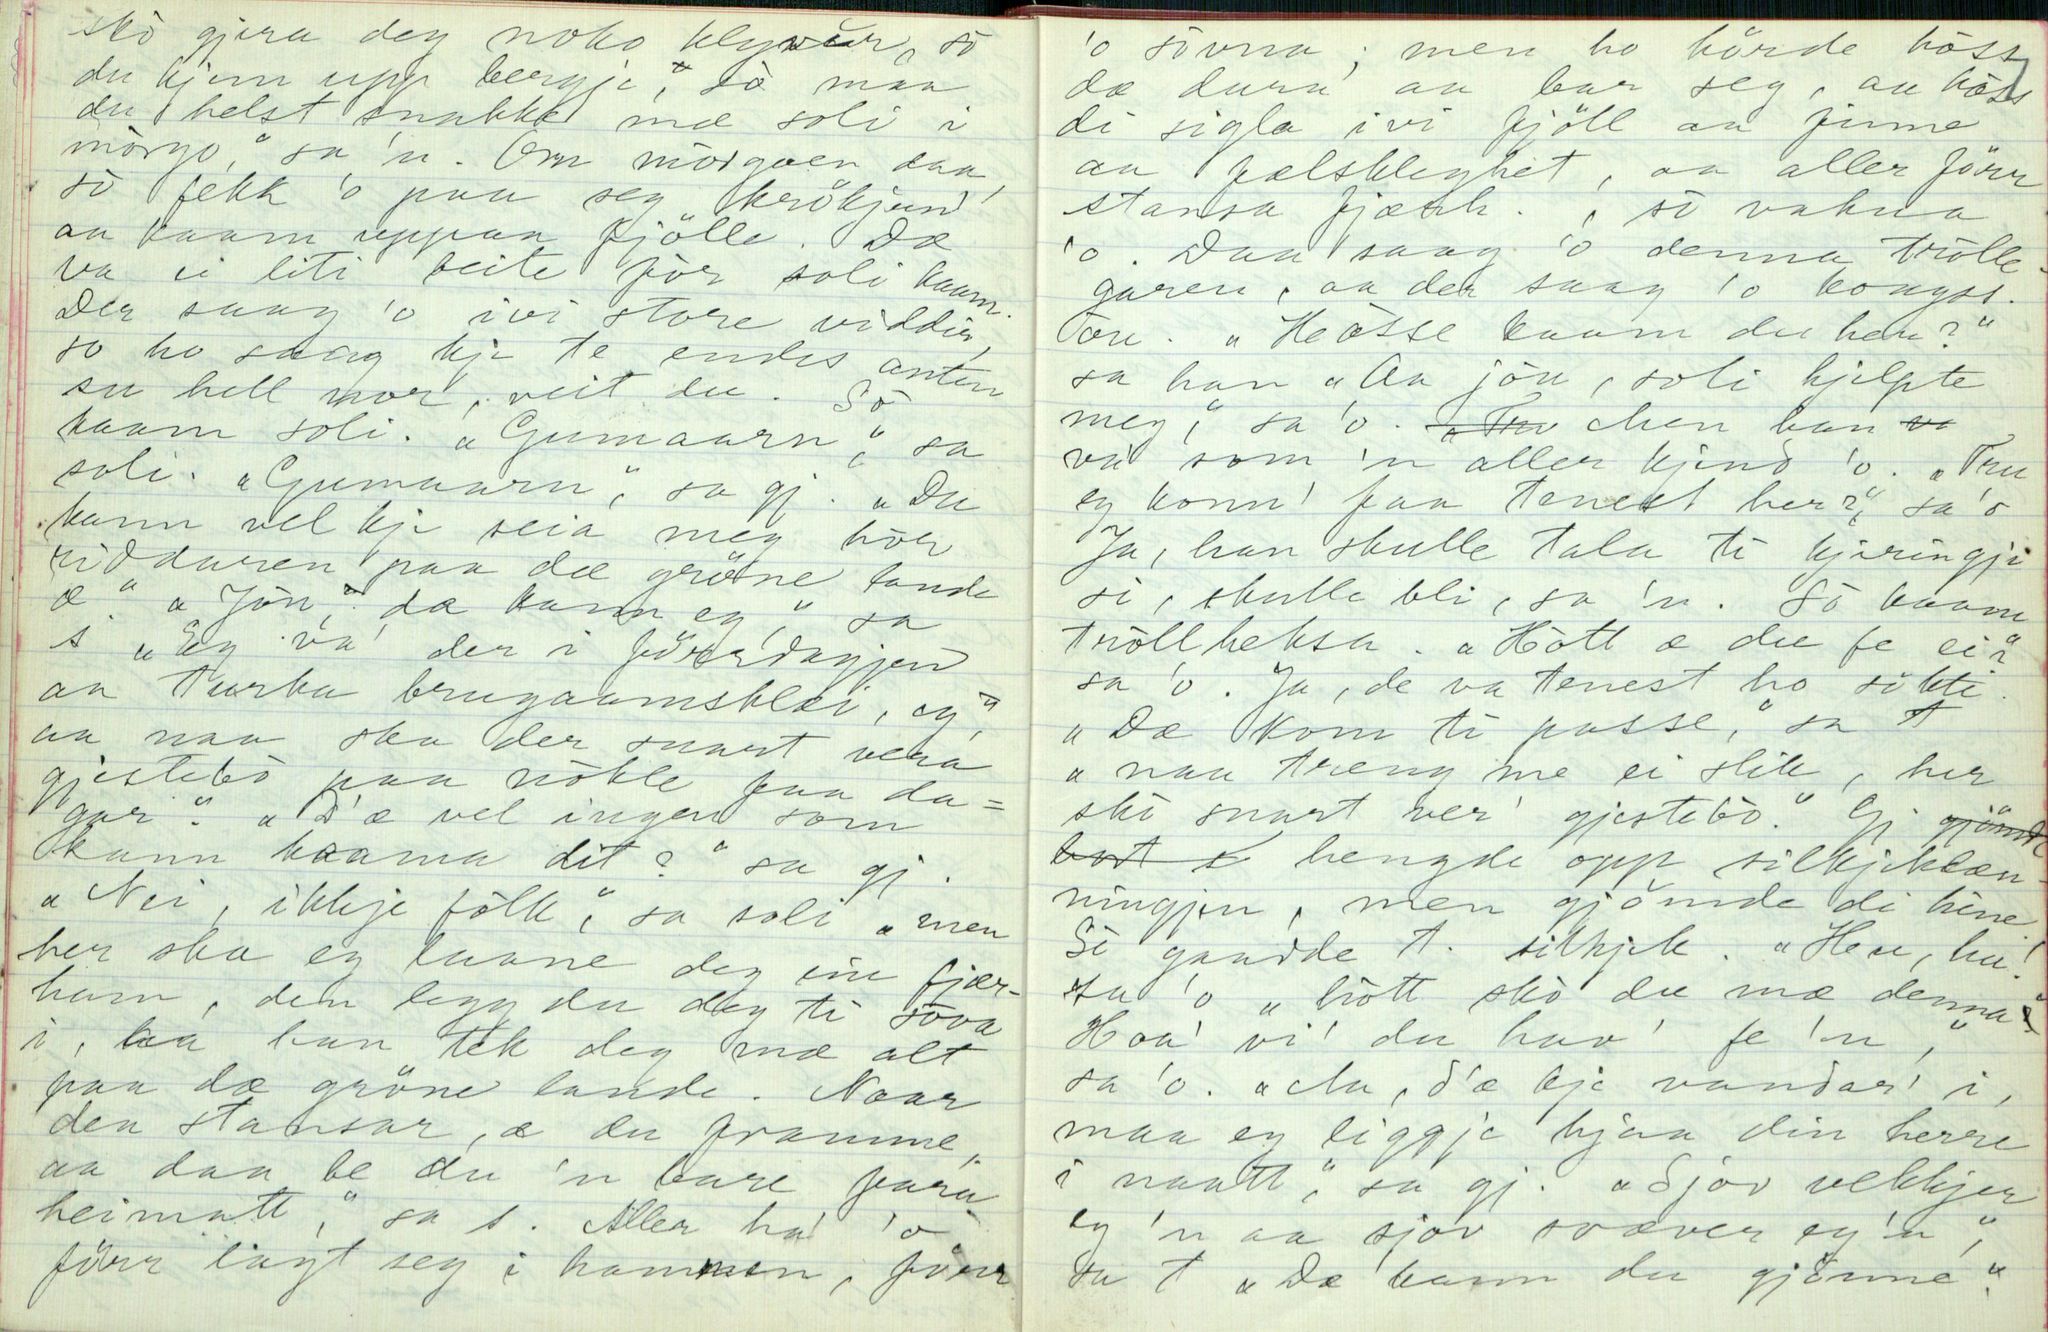 skò gjera deg noko klyvur, so
du kjem upp bergje", "so maa
du helst snakke mæ soli i
mòrgo," sa 'n. Om mòrgoen daa,
so fekk 'o paa seg krökjun'
aa kaam uppaa fjölle. Dæ
va ei liti beite för soli kaam.
Der saag 'o ivi store viddir,
so ho saag kje te endes anten
su hell nor, veit du. Sö
kaam soli. "Gumaarn," sa
soli. "Gumaarn", sa gj. "Du
kann vel kje seia meg hör
riddaren paa dæ gröne lande
æ." "Jön," dæ kann eg," sa
s "Eg va' der i förrdagjen
aa turka brugaamsklæi, eg,"
aa naa ska der snart vera
gjestebò paa nökle faa da=
gar". "D'æ vel ingen som
kann kaama dit?" sa gj.
"Nei, ikkje fölk," sa soli "men
her ska eg laane deg ein fjær-
ham, den legg du deg ti söva
i, aa han tek deg mæ alt
paa dæ gröne lande. Naar
den stansar, æ du framme,
aa daa be du 'n bare fara
heimatt," sa s. Aller ha' 'o
förr lagt seg i hammen, förr
'o sövna; men ho hörde höss
dæ dura' aa bar seg, aa höss
di sigla ivi fjöll aa finne
aa fælsklegheit, aa aller förr
stansa fjæsh., so vakna
'o. Daa saag 'o denna trölle-
garen, aa der saag 'o kongss.
òre. "Hòsse kaam du her?"
sa han "Aa jön, soli hjelpte
meg," sa 'o. Men han
va' som 'n aller kjend 'o. "Tru
eg konn' faa tenest her?," sa 'o
Ja, han skulle tala ti kjæringji
si, skulle bli, sa 'n. Sö kaam
tröllheksa. "Hòtt æ du fe ei?"
sa 'o. Ja, de va tenest ho sökte.
"Dæ kom ti passe," sa t
"naa treng me ei slik, her
skò snart ver' gjestebò." Gj gjömde
bort s hengde opp silkjeklæn-
ningjen, men gjömde di hine.
Sò gaadde t. silkjek. "Hu, hu!
sa 'o "hòtt skò du mæ denna?"
Hoa' vi' du hav' fe 'n,"
sa 'o. "Au, d'æ kje vandar' i,
maa eg liggje hjaa din herre
i naatt," sa gj. "Sjöv vekkjer
eg 'n aa sjöv svæver eg 'n,"
sa t "Dæ kann du gjönne".